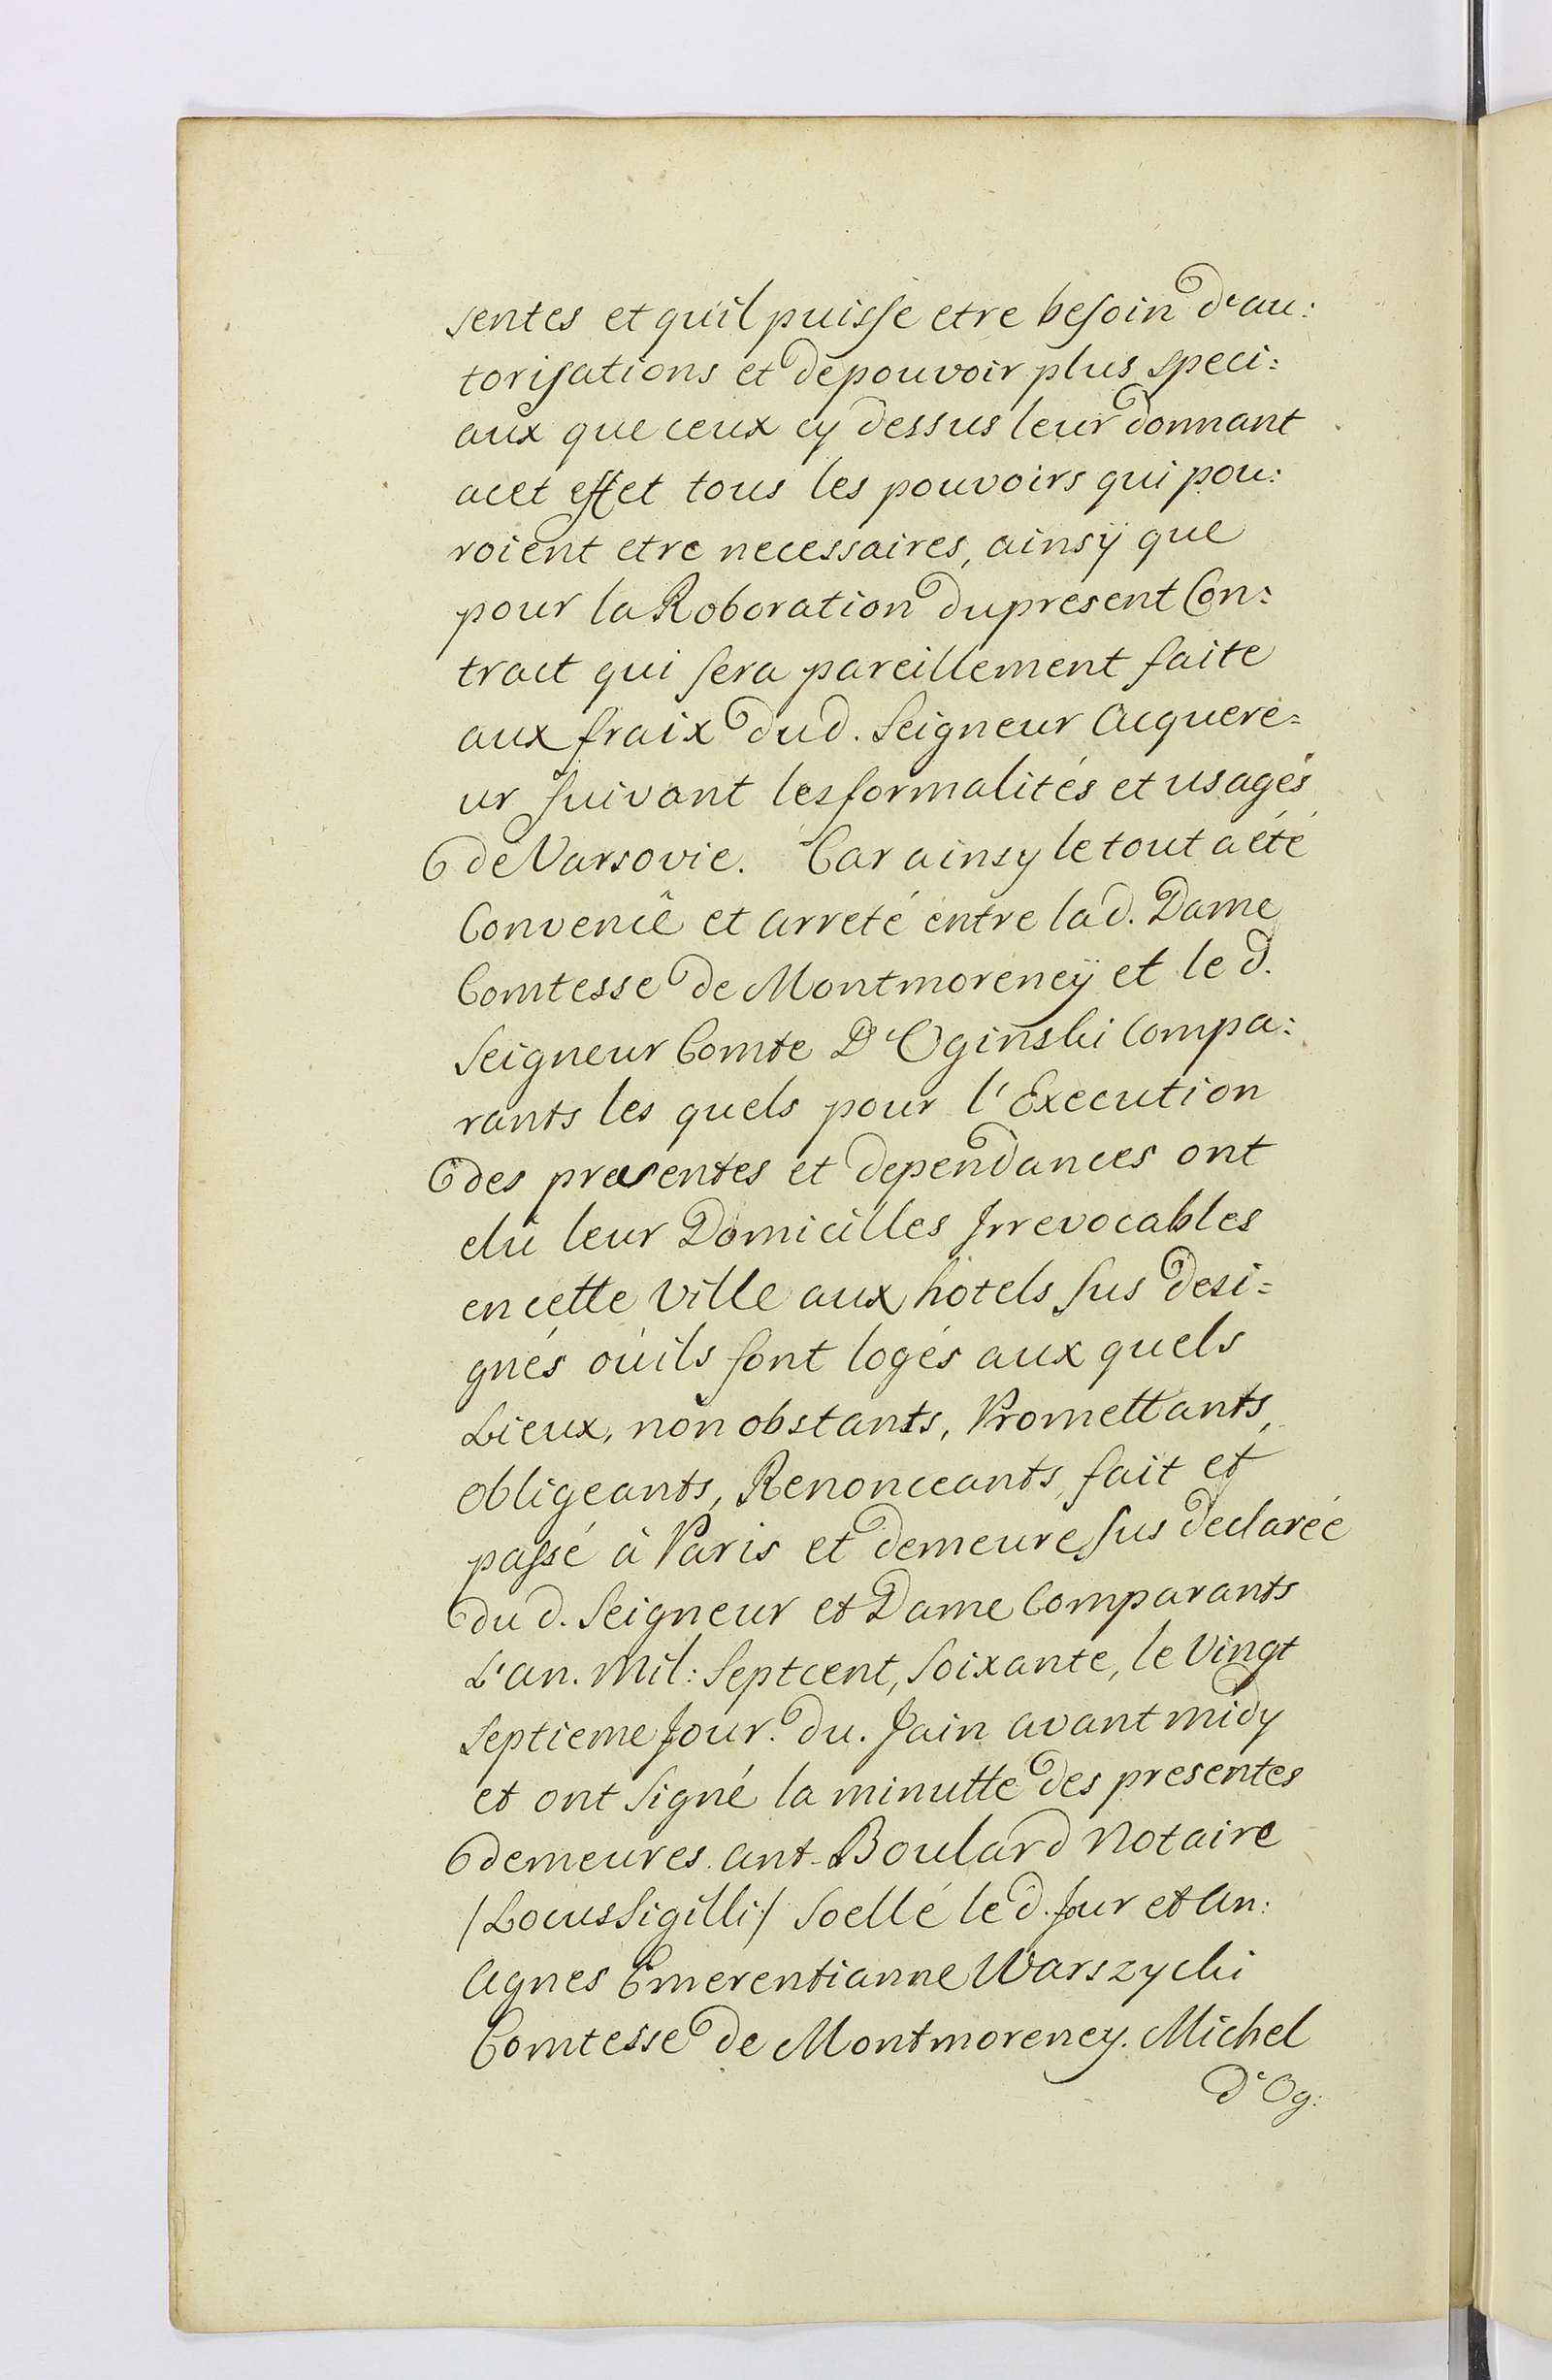 sentes et qu'il puisse etre besoin d'au:
torisations et de pouvoir plus speci:
aux que ceux cy dessus leur donnant
acet effet tous les pouvoirs qui pou:
roient etre necessaires, ainsÿ que
pour la Roboration du present Con:
tract qui sera pareillement faite
aux fraix dud. Seigneur Acquere=
ur suivant les formalités et usagés
de Varsovie. Car ainsy le tout a été
Convenúe et arreté entre lad. Dame
Comtesse de Montmorencÿ et le d.
Seigneur Comte D'Oginski Compa:
rants les quels pour l'Execution
des presentes et dependances ont
elu leur Domicilles Irrevocables
en cette Ville aux hotels sus desi=
gnés où ils sont logés aux quels
Lieux, non obstants, Promettants,
obligeants, Renonceants, fait et
passé à Paris et demeure sus declarée
du d. Seigneur et Dame Comparants
L'an. Mil: Septcent, Soixante, le Vingt
Septieme Jour. du. Juin avant midy
et ont Signé la minutte des presentes
demeures. ant. Boulard Notaire
/Locus Sigilli/ Scellé le d. Jour et An:
Agnes Emerentianne Warszycki
Comtesse de Montmorency. Michel
d'Og: